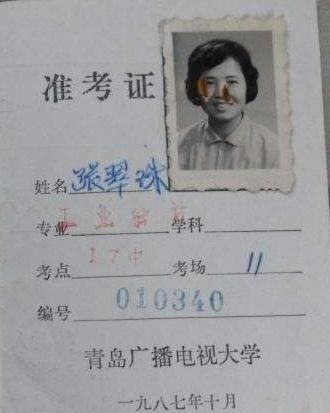 准考证
姓名 张翠珠
专业 工业会计 学科
考点 17中 考场 11
编号 010340
青岛广播电视大学
一九八七年十月